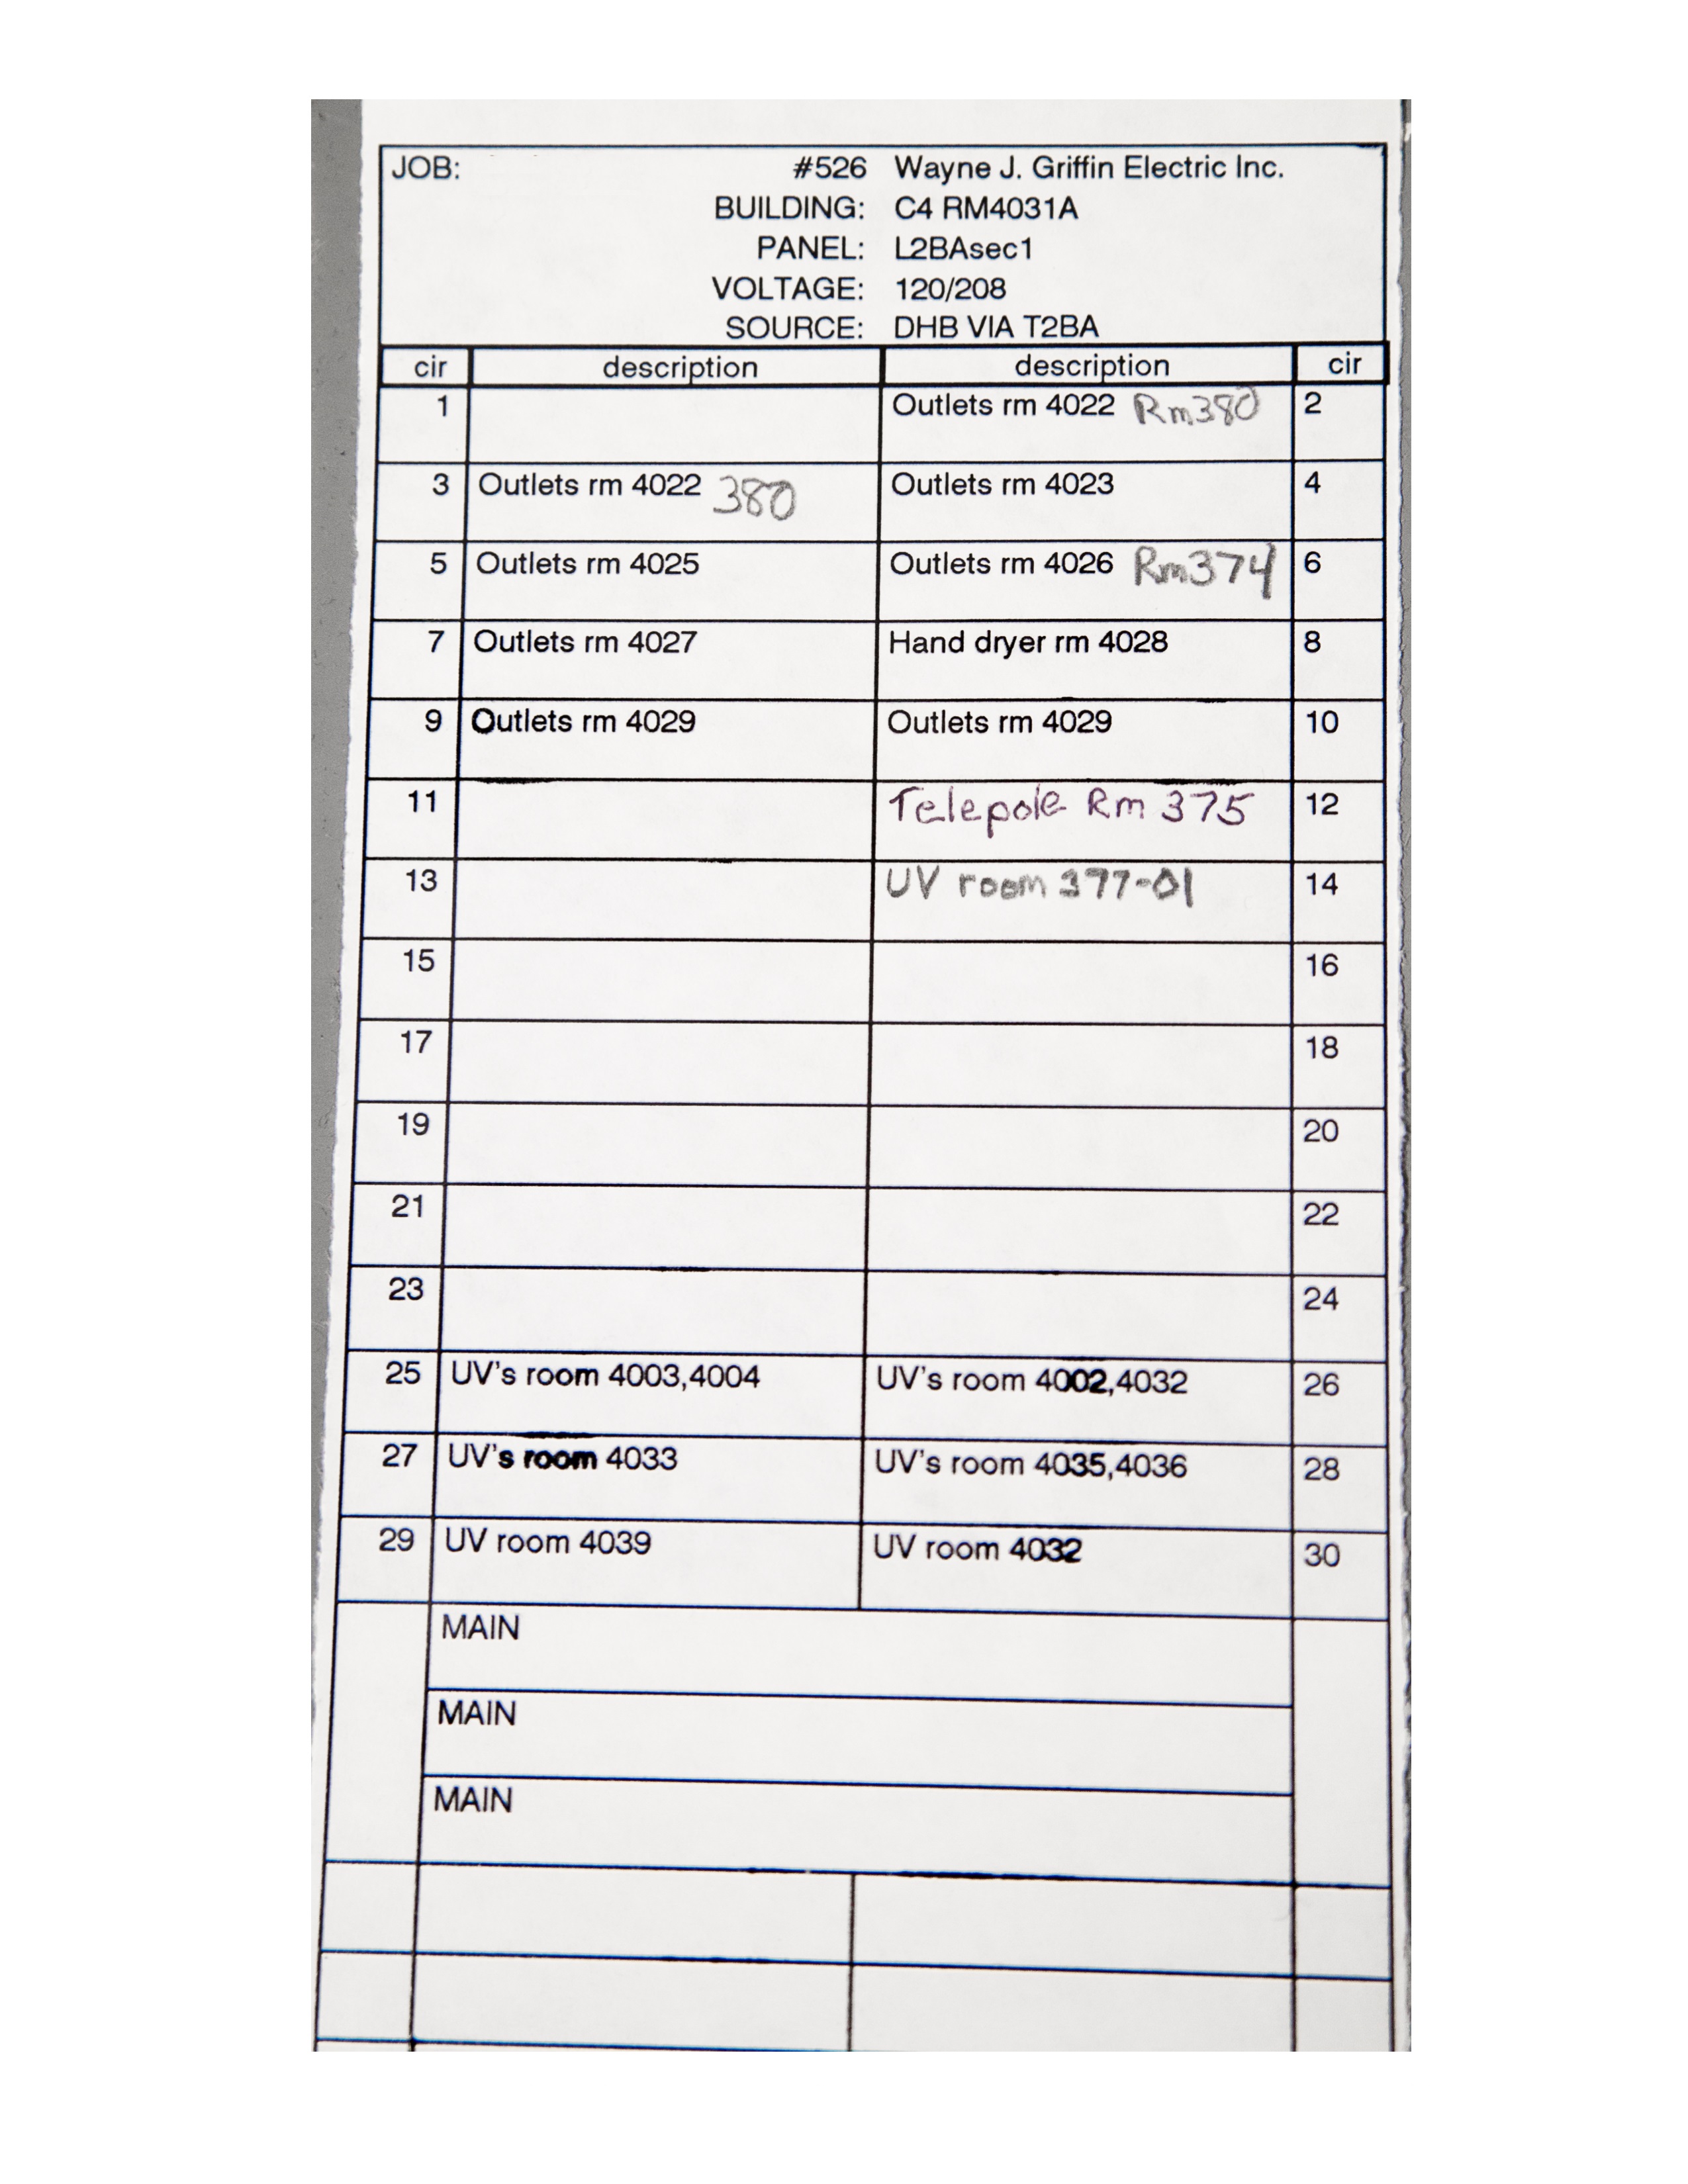 JOB: #526 Wayne J. Griffin Electric Inc.
BUILDING: C4 RM4031A
PANEL: L2BAsec1
VOLTAGE: 120/208
SOURCE: DHB VIA T2BA
cir description description cir
1 Outlets rm 4022 Rm380 2
3 Outlets rm 4022 380 Outlets rm 4023 4
5 Outlets rm 4025 Outlets rm 4026 Rm374 6
7 Outlets rm 4027 Hand dryer rm 4028 8
9 Outlets rm 4029 Outlets rm 4029 10
11 Telepole Rm 375 12
13 UV room 377-01 14
15 16
17 18
19 20
21 22
23 24
25 UV's room 4003,4004 UV's room 4002,4032 26
27 UV's room 4033 UV's room 4035,4036 28
29 UV room 4039 UV room 4032 30
MAIN
MAIN
MAIN